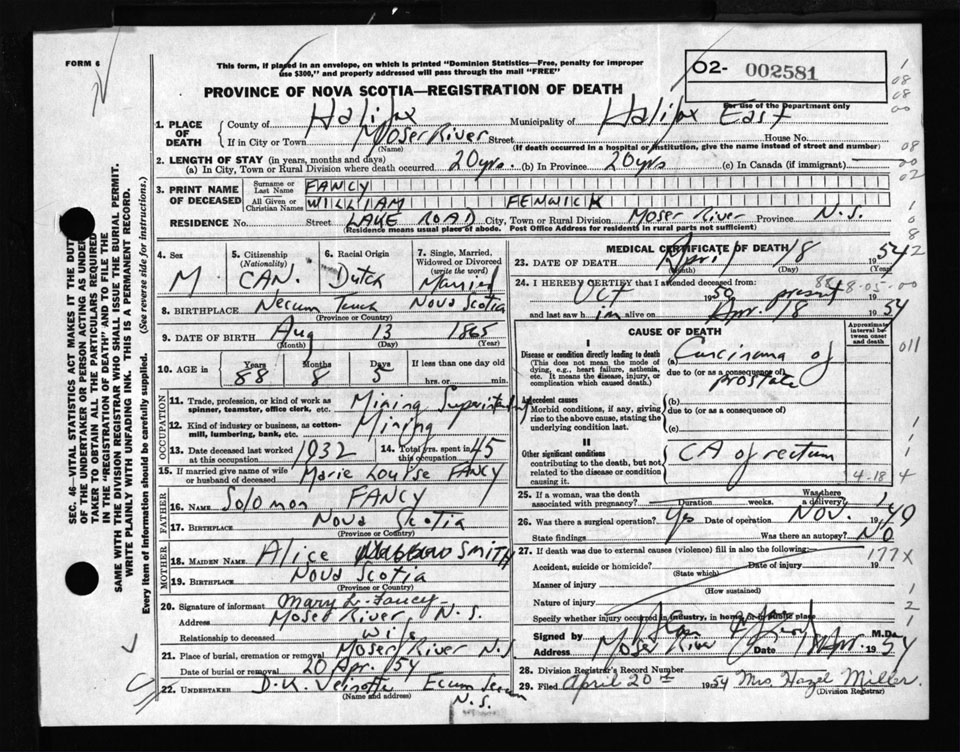 FORM 6
This form, if placed in an envelope, on which is printed "Dominion Statistics—Free, penalty for improper
use $300," and properly addressed will pass through the mail "FREE"
O2- 002581
For use of the Department only
PROVINCE OF NOVA SCOTIA—REGISTRATION OF DEATH
1. PLACE OF DEATH County of Halifax Municipality of Halifax East
If in City or Town Moser River Street House No.
(Name) (If death occurred in a hospital or institution, give the name instead of street and number)
2. LENGTH OF STAY (in years, months and days)
(a) In City, Town or Rural Division where death occurred 20 yrs. (b) In Province 20 yrs (c) In Canada (if immigrant)
3. PRINT NAME OF DECEASED Surname or Last Name FANCY
All Given or Christian Names WILLIAM FENWICK
RESIDENCE No. Street LAKE ROAD City, Town or Rural Division Moser River Province N.S.
(Residence means usual place of abode. Post Office Address for residents in rural parts not sufficient)
4. Sex M
5. Citizenship (Nationality) CAN.
6. Racial Origin Dutch
7. Single, Married, Widowed or Divorced (write the word) Married
8. BIRTHPLACE Necum Teuch Nova Scotia
(Province or Country)
9. DATE OF BIRTH Aug 13 1865
(Month) (Day) (Year)
10. AGE in Years 88 Months 8 Days 5 If less than one day old
hrs. or min.
OCCUPATION
11. Trade, profession, or kind of work as spinner, teamster, office clerk, etc. Mining Superintendent
12. Kind of industry or business, as cotton-mill, lumbering, bank, etc. Mining
13. Date deceased last worked at this occupation 1932
14. Total yrs. spent in this occupation 45
15. If married give name of wife or husband of deceased Marie Louise FANCY
FATHER
16. NAME Solomon FANCY
17. BIRTHPLACE Nova Scotia
(Province or Country)
MOTHER
18. MAIDEN NAME Alice SMITH
19. BIRTHPLACE Nova Scotia
(Province or Country)
20. Signature of informant Mary L. Fancy
Address Moser River N.S.
Relationship to deceased Wife
21. Place of burial, cremation or removal Moser River N.S
Date of burial or removal 20 Apr. 54
22. UNDERTAKER D.K. Veinotte Ecum Secum
(Name and address) N.S.
MEDICAL CERTIFICATE OF DEATH
23. DATE OF DEATH April 18 1954
(Month) (Day) (Year)
24. I HEREBY CERTIFY that I attended deceased from
Oct 1950 present 19
and last saw him alive on Apr. 18 1954
CAUSE OF DEATH
Approximate interval between onset and death
I
Disease or condition directly leading to death
(This does not mean the mode of dying, e.g., heart failure, asthenia, etc. It means the disease, injury, or complication which caused death.)
(a) Carcinoma of prostate
due to (or as a consequence of)
Antecedent causes
Morbid conditions, if any, giving rise to the above cause, stating the underlying condition last.
(b)
due to (or as a consequence of)
(c)
II
Other significant conditions
contributing to the death, but not related to the disease or condition causing it.
CA of rectum
4-18 4
25. If a woman, was the death associated with pregnancy? Duration weeks. Was there a delivery?
26. Was there a surgical operation? Yes Date of operation NOV. 1949
State findings Was there an autopsy? NO
27. If death was due to external causes (violence) fill in also the following:
177X
Accident, suicide or homicide? Date of injury 19
(State which)
Manner of injury
(How sustained)
Nature of injury
Specify whether injury occurred in industry, in home or in public place
Signed by M.D.
Address Moser River Date 18 Apr. 1954
28. Division Registrar's Record Number
29. Filed April 20th 1954 Mrs Hazel Miller
(Division Registrar)
SEC. 46—VITAL STATISTICS ACT MAKES IT THE DUTY
OF THE UNDERTAKER OR PERSON ACTING AS UNDER-
TAKER TO OBTAIN ALL THE PARTICULARS REQUIRED
IN THE "REGISTRATION OF DEATH" AND TO FILE THE
SAME WITH THE DIVISION REGISTRAR WHO SHALL ISSUE THE BURIAL PERMIT.
WRITE PLAINLY WITH UNFADING INK. THIS IS A PERMANENT RECORD.
Every item of information should be carefully supplied. (See reverse side for instructions.)